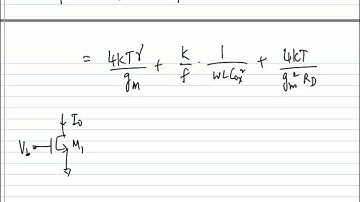 = 4kTγ/g_m + k/f · 1/WLCox² + 4kT/g_m² R_D
I₀
V_b M₁